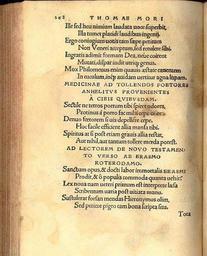 THOMAE MORI
Ille sed heu nimium laudata uoce superbit,
Illa tumet placidi laudibus ingenij.
Ergo contagium uotis tam saepe petitum
Non Veneri acceptum, sed renuere sibi.
Ingratis adimit formam Dea, neue coirent
Mutati, dispar indit utrique genus.
Mox Philomenus enim quauis
In cuculum, inque auidam uertitur agna lupam.
MEDICINAE AD TOLLENDOS FOETORES
ANHELITVS PROVENIENTES
A CIBIS QVIBVSDAM.
Sectile ne tetros porrum tibi spiret odores,
Protinus à porro fac mihi cepe uores.
Denuo foetorem si uis depellere cepe,
Hoc facile efficient allia mansa tibi.
Spiritus at si post etiam grauis allia restat,
Aut nihil, aut tantum tollere merda potest.
AD LECTOREM DE NOVO TESTAMEN
TO VERSO AB ERASMO
ROTERODAMO.
Sanctum opus, & docti labor immortalis ERASMI
Prodit, & ô populis commoda quanta uehit?
Lex noua nam ueteri primum est interprete laesa
Scribentum uaria post uitiata manu.
Sustulerat forsan mendas Hieronymus olim,
Sed periere pigro tam bona scripta situ.
Tota